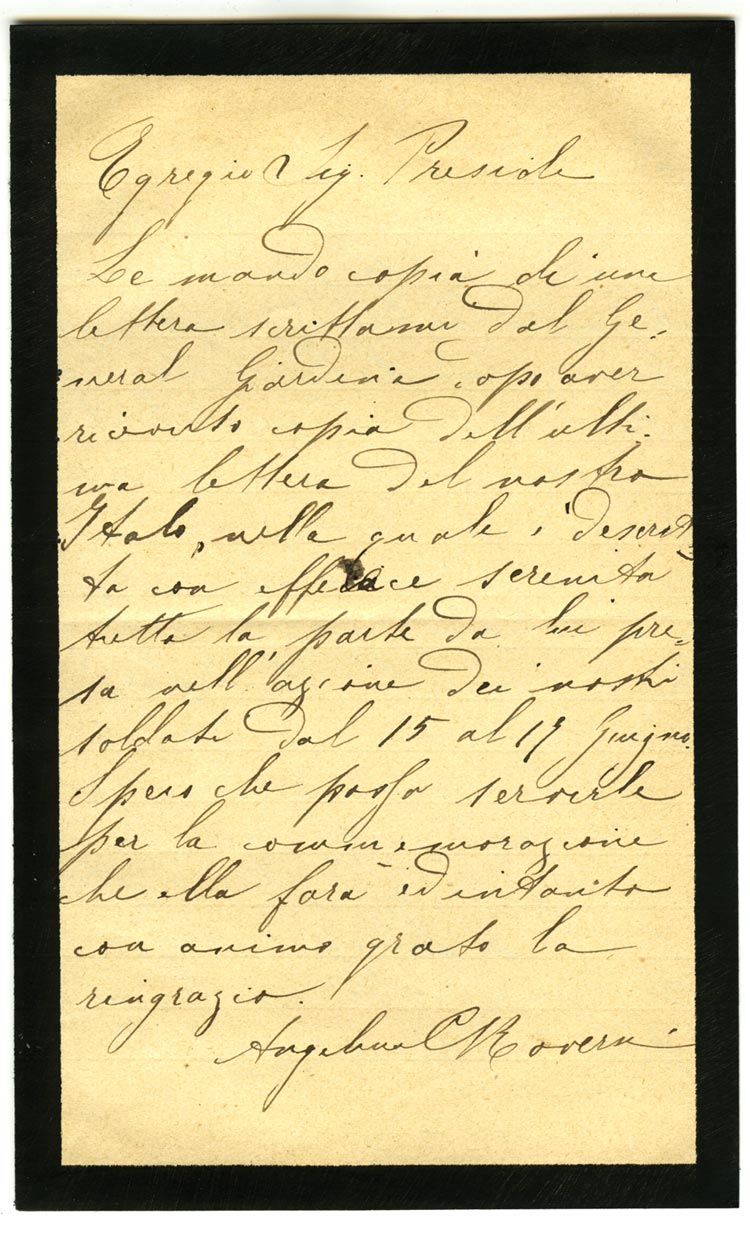 Egregio Sig. Preside
Le mando copia di una
lettera scrittami dal Ge-
neral Giardina dopo aver
ricevuto copia dell'ulti-
ma lettera del nostro
Italo, nella quale è descrit-
ta con efficace serenita
tutta la parte da lui pre-
sa nell'azione dei nostri
soldati dal 15 al 19 Giugno.
Spero che possa servirle
per la commemorazione
che ella farà ed intanto
con animo grato la
ringrazio.
Angelina Roveri